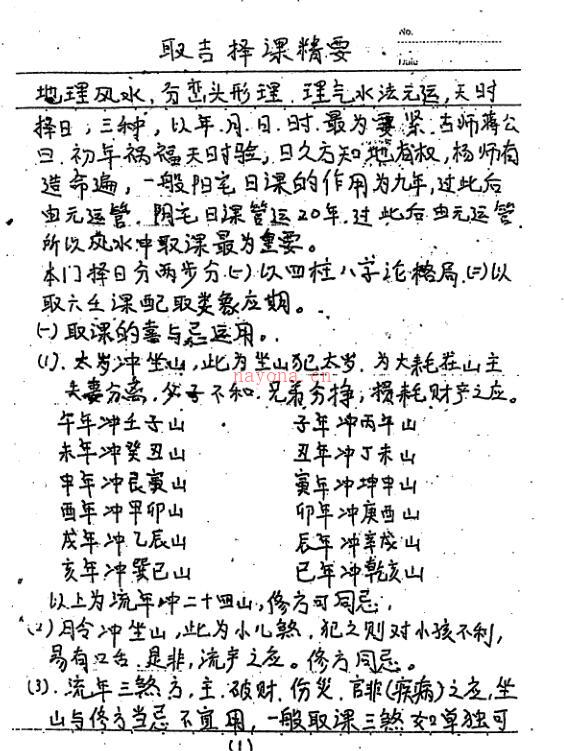 取吉择课精要
No.
Date
地理风水,分峦头形理,理气水法元运,天时
择日,三种,以年.月.日.时.最为要紧.古师蒋公
曰.初年祸福天时验,日久方知地有权,杨师有
造命遍,一般阳宅日课的作用为九年,过此后
由元运管.阴宅日课管运20年.过此后由元运管.
所以风水冲取课最为重要。
本门择日分两步分㈠以四柱八字论格局.㈡以
取六壬课配取类象应期。
㈠取课的喜与忌运用。
(1).太岁冲坐山,此为坐山犯太岁.为大耗在山主
夫妻分离,父子不和.兄弟分挣,损耗财产之应。
nayona.cn
午年冲壬子山 子年冲丙午山
未年冲癸丑山 丑年冲丁未山
申年冲艮寅山 寅年冲坤申山
酉年冲甲卯山 卯年冲庚酉山
戌年冲乙辰山 辰年冲辛戌山
亥年冲巽巳山 巳年冲乾亥山
以上为流年冲二十四山,修方可同忌,
(2)月令冲坐山,此为小儿煞.犯之则对小孩不利,
易有口舌.是非,流产之应。修方同忌。
(3).流年三煞方,主.破财.伤灾.官非(疾病)之应,坐
山与修方当忌不宜用,一般取课三煞如单独可
(1)